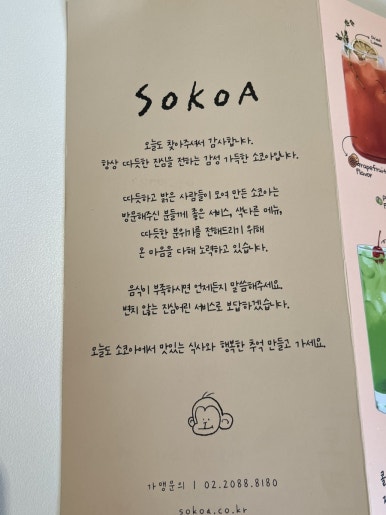 SOKOA
오늘도 찾아주셔서 감사합니다.
항상 따듯한 진심을 전하는 감성 가득한 소코아입니다.
따듯하고 밝은 사람들이 모여 만든 소코아는
방문해주신 분들께 좋은 서비스, 색다른 메뉴,
따듯한 분위기를 전해드리기 위해
온 마음을 다해 노력하고 있습니다.
음식이 부족하시면 언제든지 말씀해주세요.
변치 않는 진심어린 서비스로 보답하겠습니다.
오늘도 소코아에서 맛있는 식사와 행복한 추억 만들고 가세요.
가맹문의 | 02.2088.8180
sokoa.co.kr
Grapefruit
Flavor